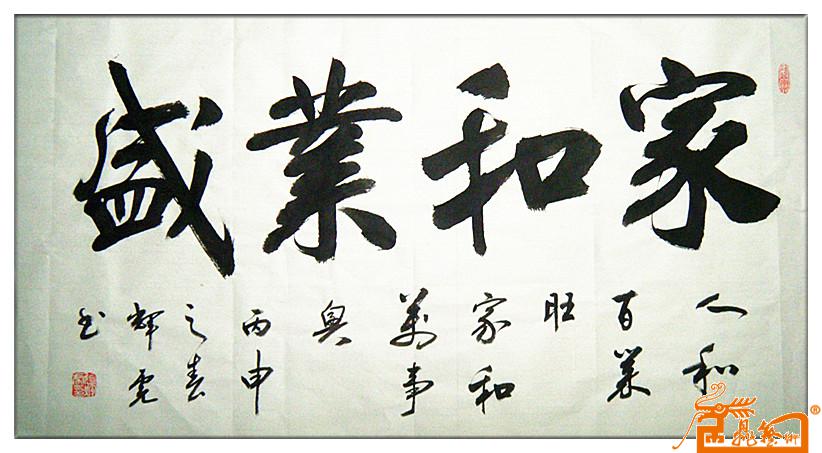 家和業盛
人和
百業
旺
家和
萬事
興
丙申
之春
輝
书